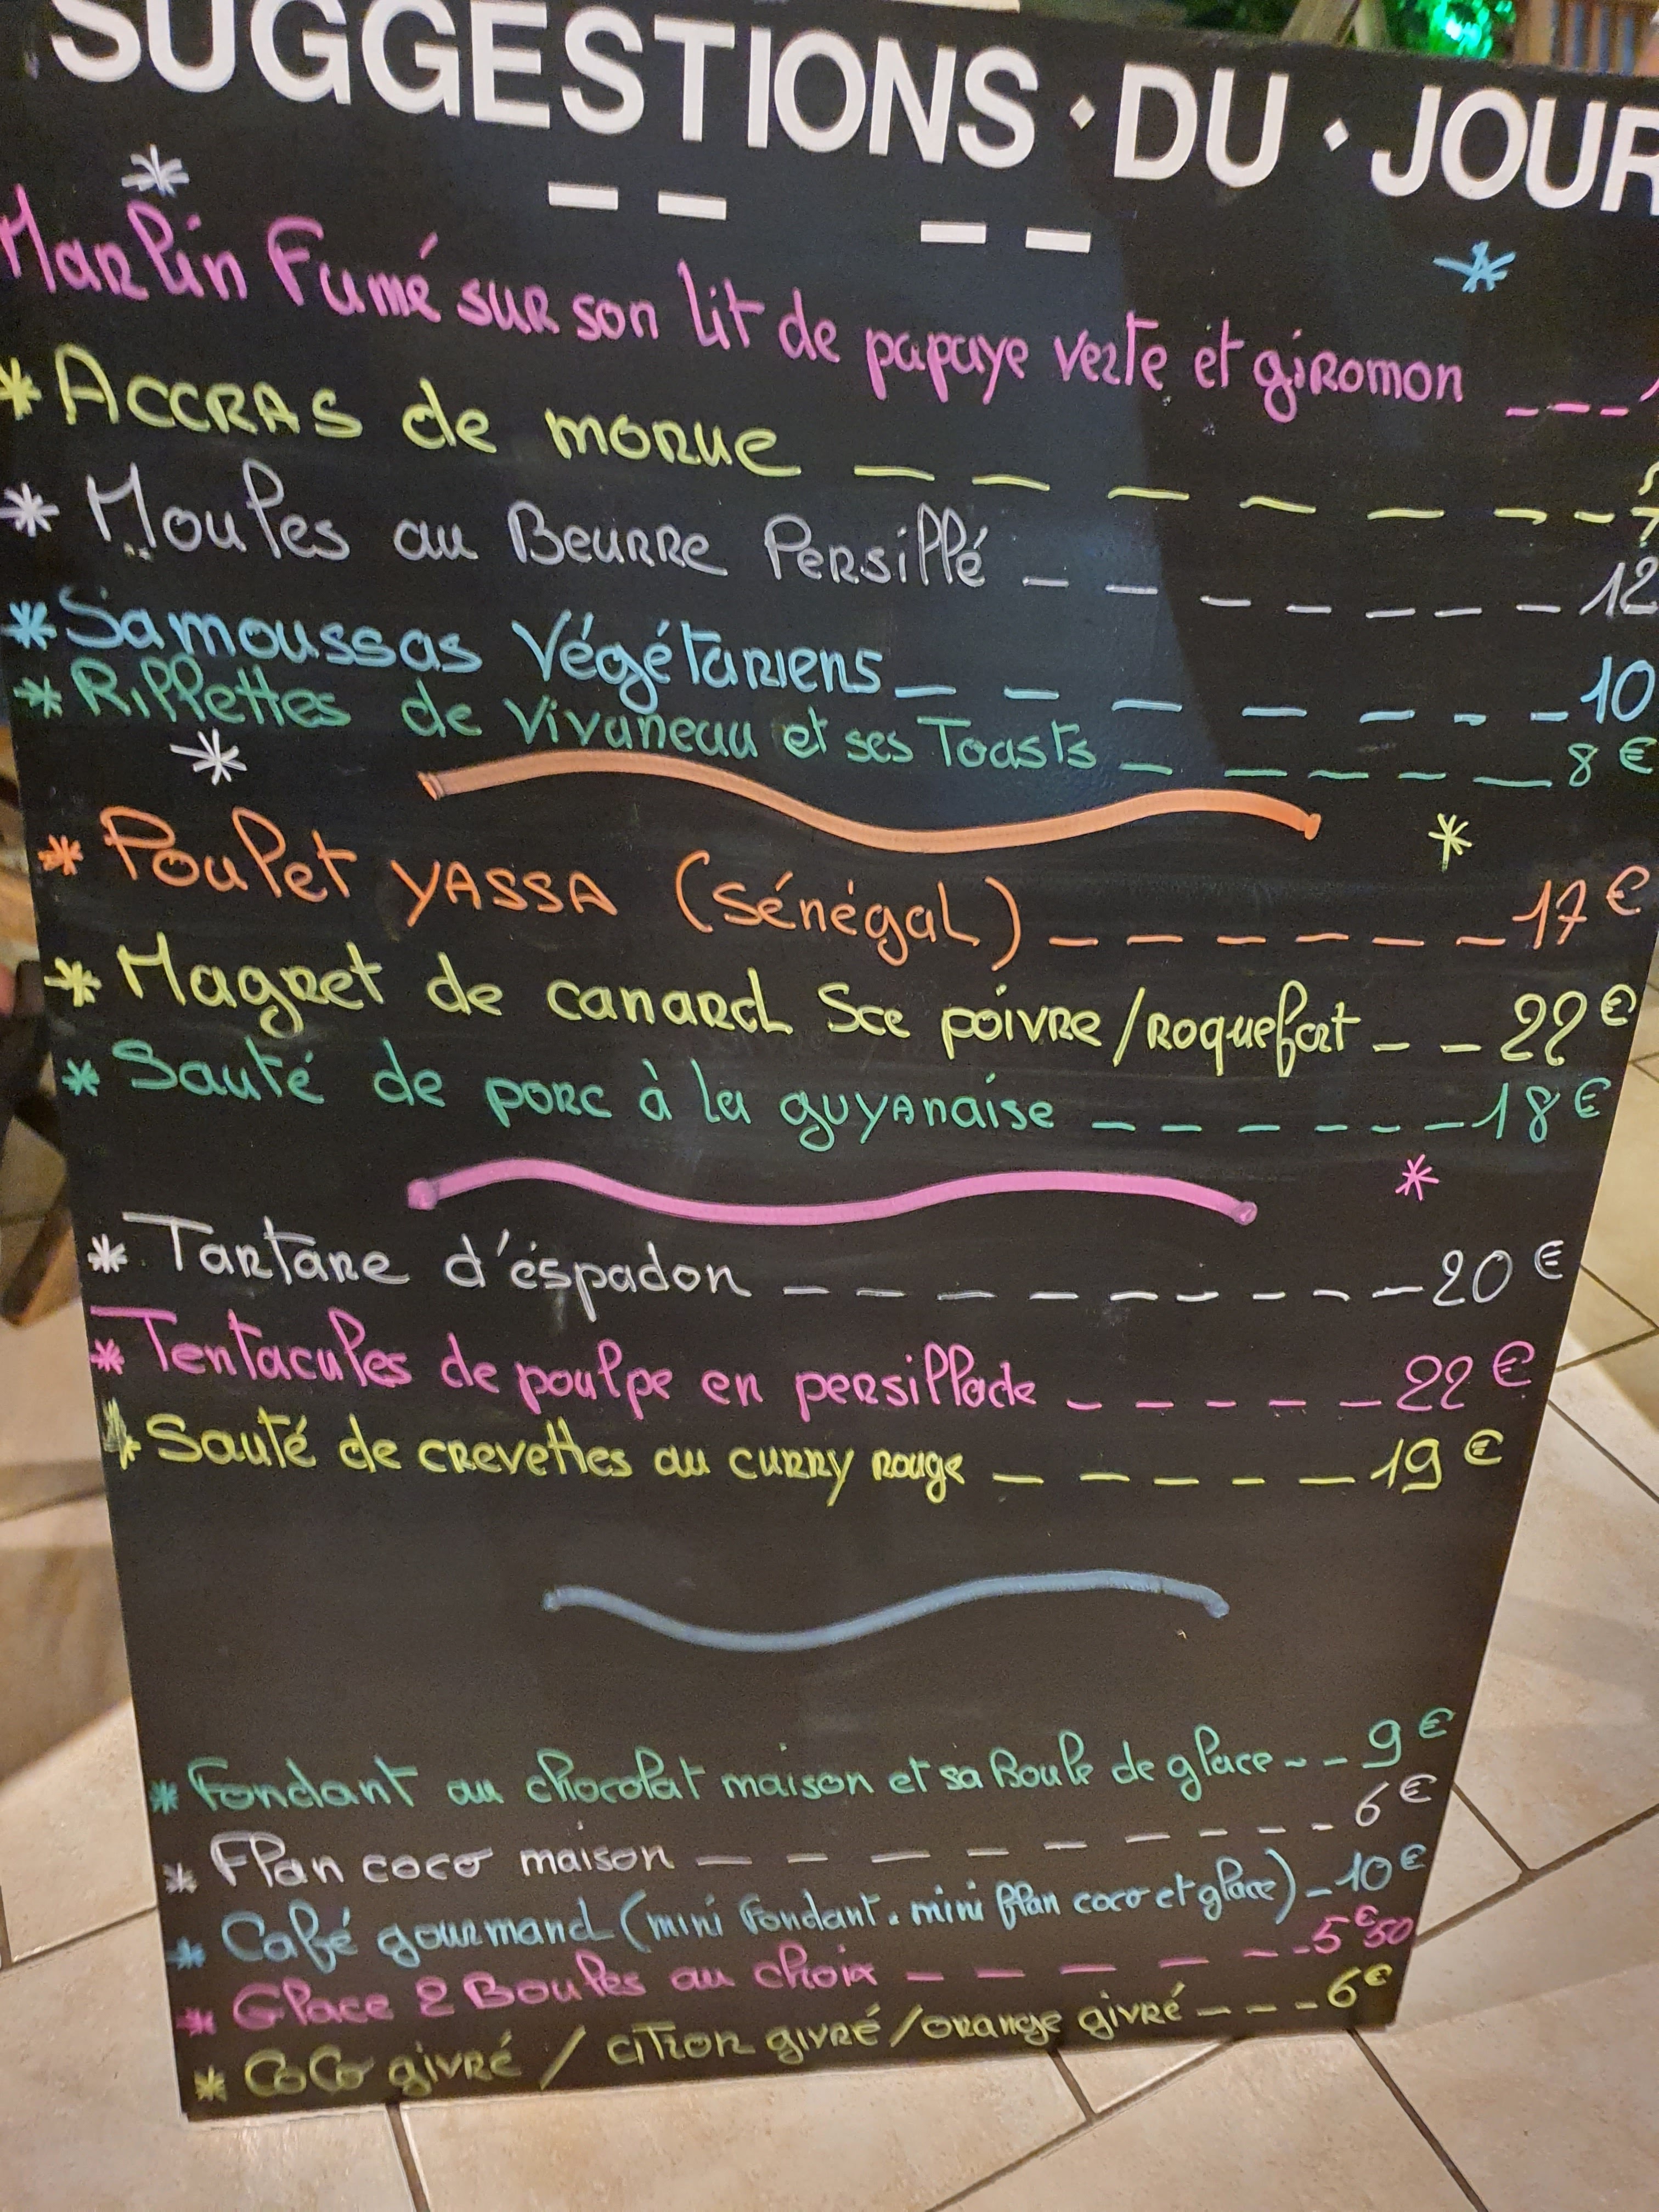 SUGGESTIONS · DU · JOUR
Marlin Fumé sur son lit de papaye verte et giromon ---
* Accras de morue -------
* Moules au Beurre Persillé ------- 12
* Samoussas Végétariens ------- 10
* Rillettes de Vivaneau et ses Toasts ----- 8 €
* Poulet YASSA (Sénégal) ------ 17 €
* Magret de canard Sce poivre/roquefort -- 22 €
* Sauté de porc à la guyanaise ------ 18 €
* Tartare d'éspadon --------- 20 €
* Tentacules de poulpe en persillade ----- 22 €
* Sauté de crevettes au curry rouge ----- 19 €
* Fondant au chocolat maison et sa Boule de glace -- 9 €
* Flan coco maison -------- 6 €
* Café gourmand (mini fondant. mini flan coco et glace) - 10 €
* Glace 2 Boules au choix ------ 5€50
* Coco givré / citron givré / orange givré ---- 6€